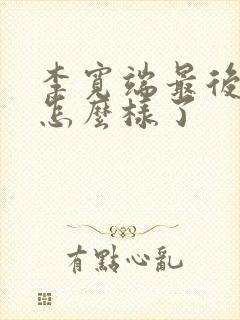 李寬端最後
怎麼樣了
有點心亂